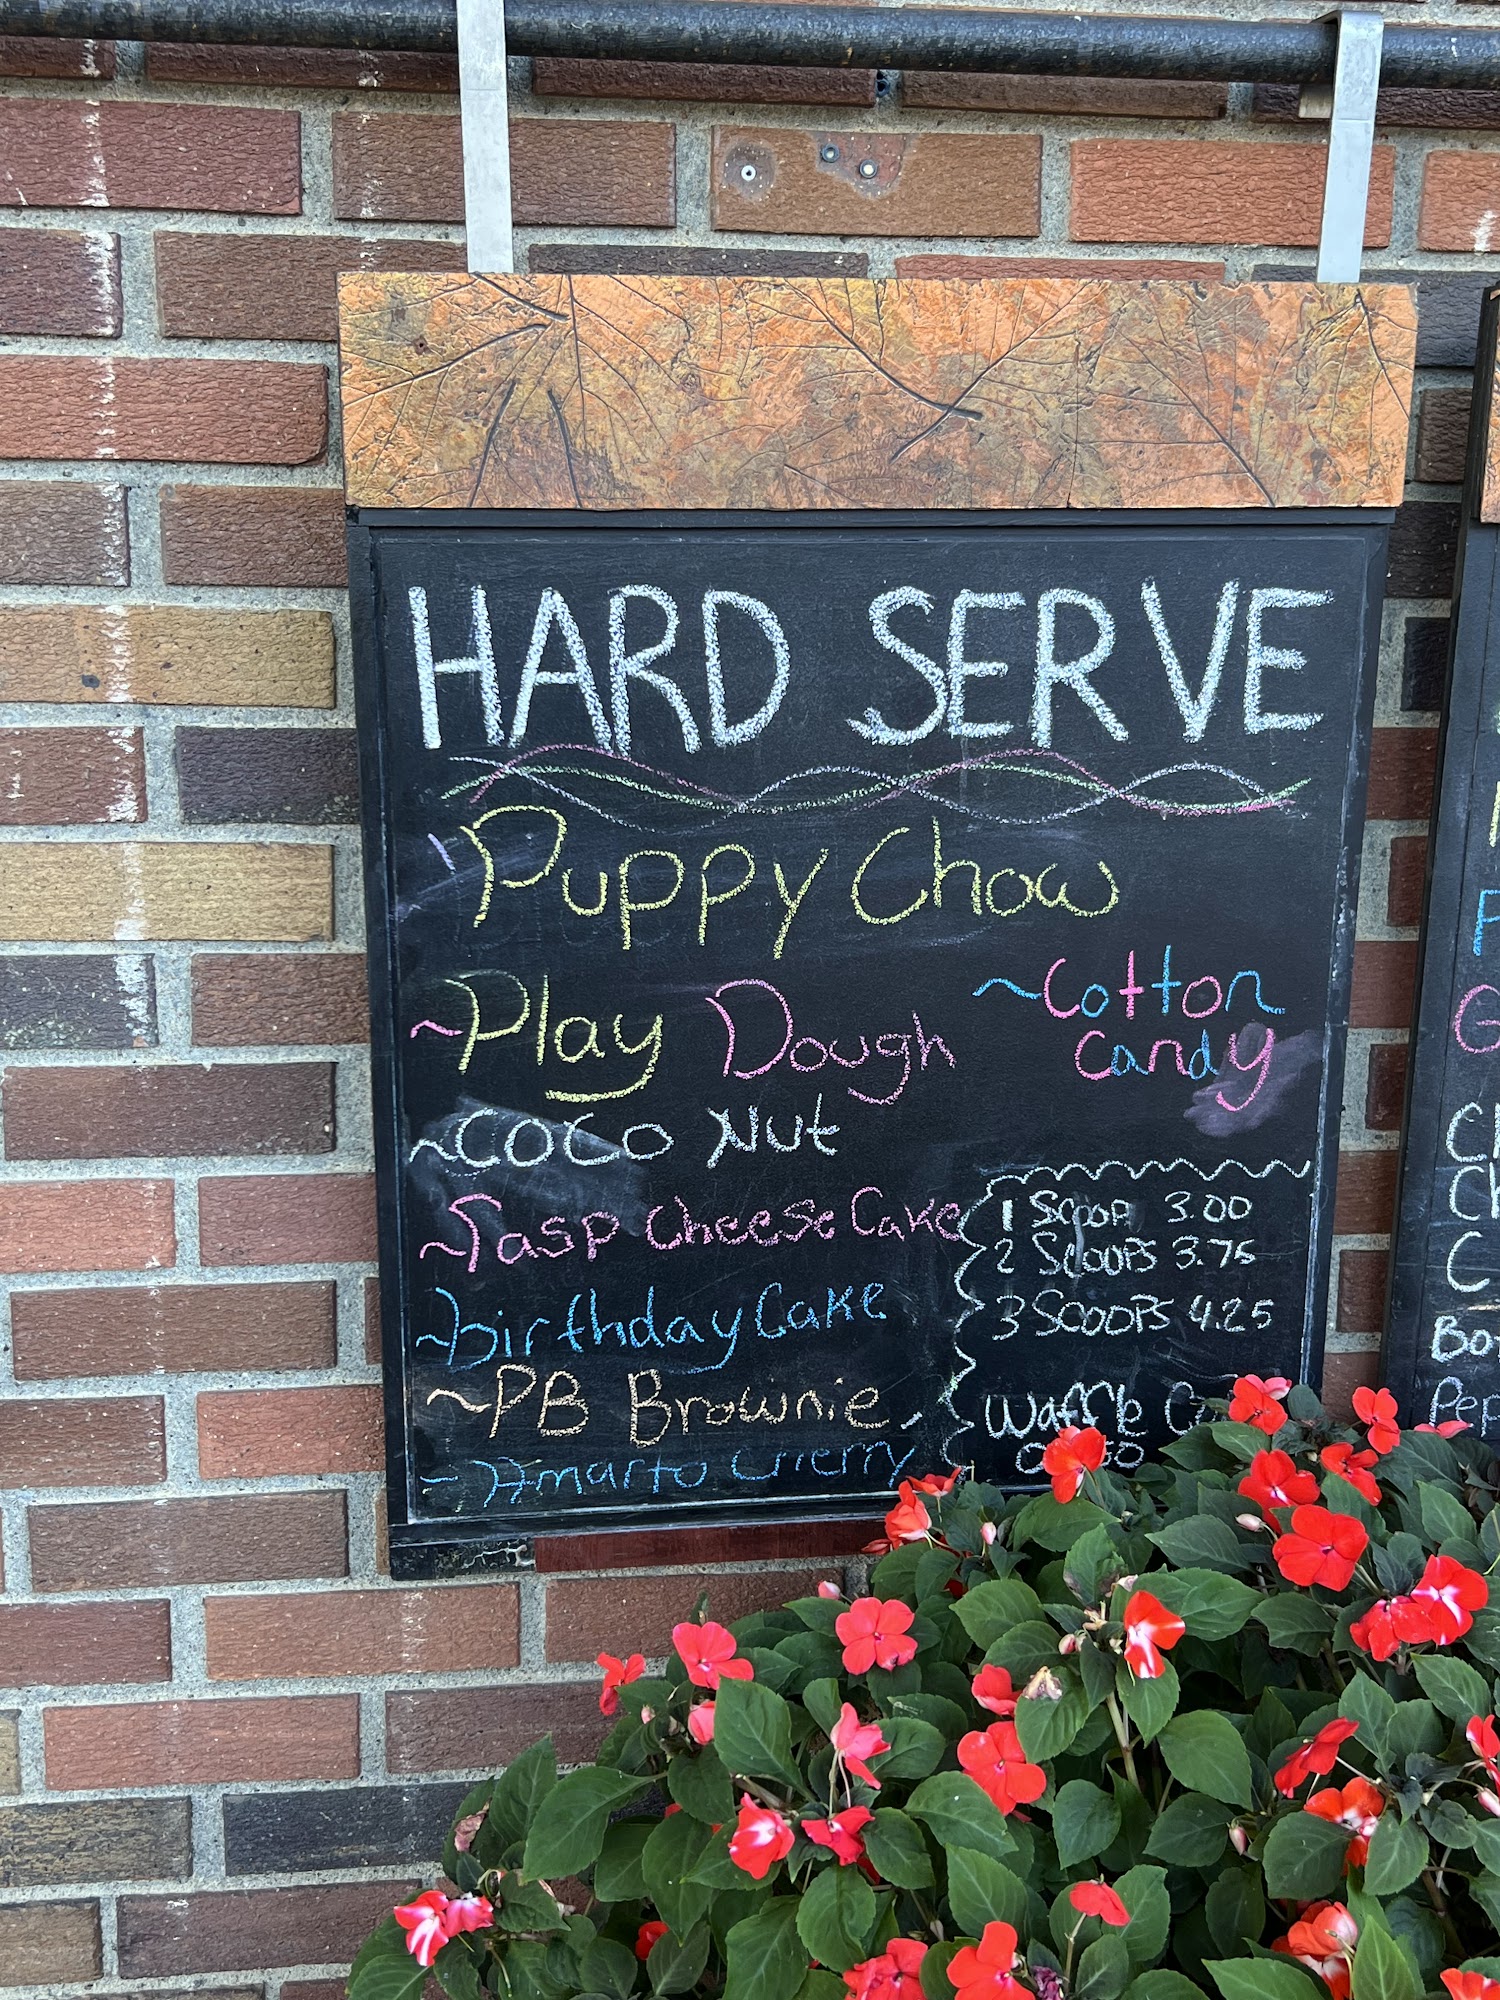 HARD SERVE
Puppy Chow
~Play Dough
~Cotton
Candy
~COCO Nut
~Rasp CheeseCake
~birthdayCake
~PB Brownie
~Amarto Cherry
1 Scoop 3.00
2 Scoops 3.75
3 Scoops 4.25
Waffle